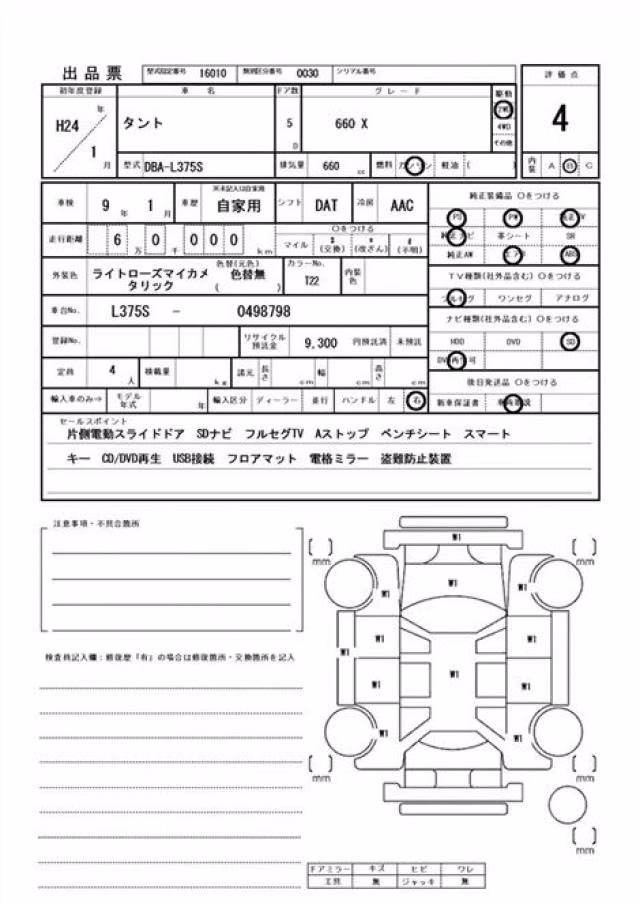 出品票 型式指定番号 16010 類別区分番号 0030 シリアル番号
初年度登録 車名 ドア数 グレード 駆動 評価点
H24 年 1 月 タント 5 D 660 X 2WD 4WD その他 4
型式 DBA-L375S 排気量 660 cc 燃料 ガソリン 軽油 ( ) 内装 A B C
車検 9 年 1 月 車歴 ※未記入は自家用 自家用 シフト DAT 冷房 AAC
走行距離 6 万 0 千 0 0 0 km ○をつける マイル $ (交換) * (改ざん) # (不明)
外装色 ライトローズマイカメタリック 色替(元色) 色替無 ( ) カラーNo. T22 内装色
車台No. L375S - 0498798
登録No. リサイクル預託金 9,300 円預託済 未預託
定員 4 人 積載量 kg 諸元 長さ cm 幅 cm 高さ cm
輸入車のみ⇒ モデル年式 年 輸入区分 ディーラー 並行 ハンドル 左 右
純正装備品 ○をつける
PS PW 純正TV
純正ナビ 革シート SR
純正AW エアB ABS
TV種類(社外品含む) ○をつける
フルセグ ワンセグ アナログ
ナビ種類(社外品含む) ○をつける
HDD DVD SD
DVD再生可
後日発送品 ○をつける
新車保証書 車両取説
セールスポイント
片側電動スライドドア SDナビ フルセグTV Aストップ ベンチシート スマート
キー CD/DVD再生 USB接続 フロアマット 電格ミラー 盗難防止装置
注意事項・不具合箇所
検査員記入欄:修復歴「有」の場合は修復箇所・交換箇所を記入
W1
[ ] mm [ ] mm
W1
W1 W1
W1 W1
W1
W1
W1 W1
W1 W1
[ ] mm [ ] mm
[ ] mm
ドアミラー キズ ヒビ ワレ
工具 無 ジャッキ 無